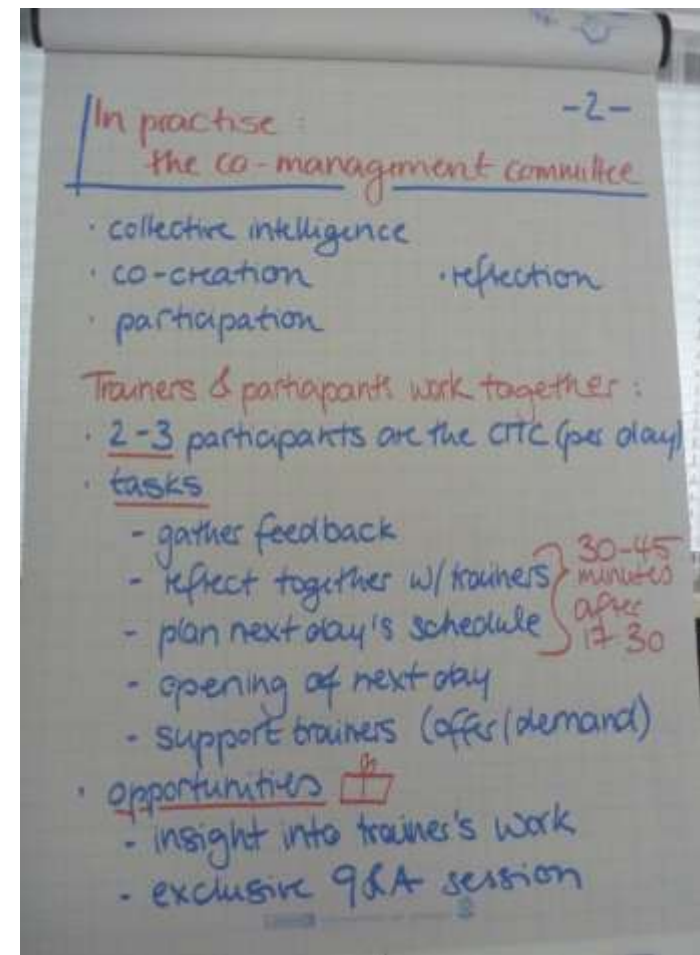 -2-
In practise :
the co-management committee
· collective intelligence
· co-creation · reflection
· participation
Trainers & participants work together :
· 2-3 participants are the CMC (per day)
· tasks
- gather feedback
- reflect together w/ trainers
- plan next day's schedule
30-45
minutes
after
17 30
- opening of next day
- support trainers (offer/demand)
· opportunities
- insight into trainer's work
- exclusive Q&A session